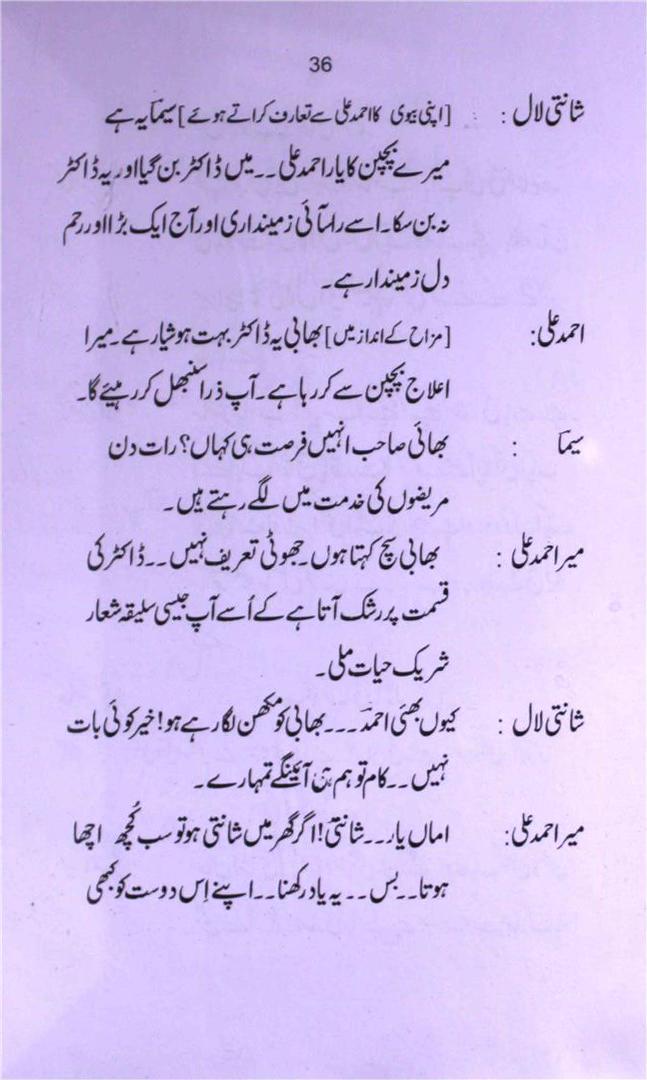 36
شانتی لال : [اپنی بیوی کا احمد علی سے تعارف کراتے ہوئے] سیما یہ ہے
میرے بچپن کا یار احمد علی۔۔میں ڈاکٹر بن گیا اور یہ ڈاکٹر
نہ بن سکا۔اسے راس آئی زمینداری اور آج ایک بڑا اور رحم
دل زمیندار ہے۔
احمد علی: [مزاح کے انداز میں] بھابی یہ ڈاکٹر بہت ہوشیار ہے۔میرا
اعلاج بچپن سے کر رہا ہے۔آپ ذرا سنبھل کر رہیئے گا۔
سیما : بھائی صاحب انہیں فرصت ہی کہاں؟ رات دن
مریضوں کی خدمت میں لگے رہتے ہیں۔
میر احمد علی : بھابی سچ کہتا ہوں۔جھوٹی تعریف نہیں۔۔ڈاکٹر کی
قسمت پر رشک آتا ہے کے اُسے آپ جیسی سلیقہ شعار
شریک حیات ملی۔
شانتی لال : کیوں بھئی احمد۔۔۔بھابی کو مکھن لگا رہے ہو! خیر کوئی بات
نہیں۔۔کام تو ہم ہی آئینگے تمہارے۔
میر احمد علی: اماں یار۔۔شانتی! اگر گھر میں شانتی ہو تو سب کُچھ اچھا
ہوتا۔۔بس۔۔یہ یاد رکھنا۔۔اپنے اِس دوست کو کبھی